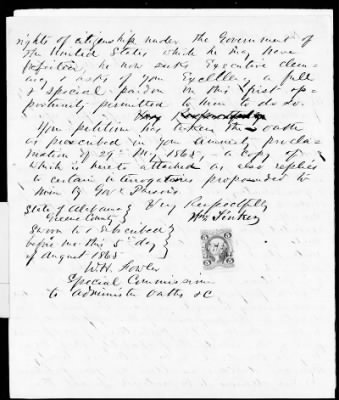 rights of citizenship under the Government of
the United States which he may have
forfeited, he now seeks Executive clem-
ency & asks of your Excellency a full
& special pardon in this first op-
portunity permitted to him to do so.
Very Respectfully
Your petitioner has taken the oath
as prescribed in your Amnesty procla-
mation of 29th May 1865, a copy of
which is hereto attached as also replies
to certain interrogatories propounded to
him by Govr Parsons
State of Alabama } Very Respectfully
Greene County }
Sworn to & subscribed }
before me this 5th day }
of August 1865
W.H. Fowler
Special Commissioner
to administer oaths &c